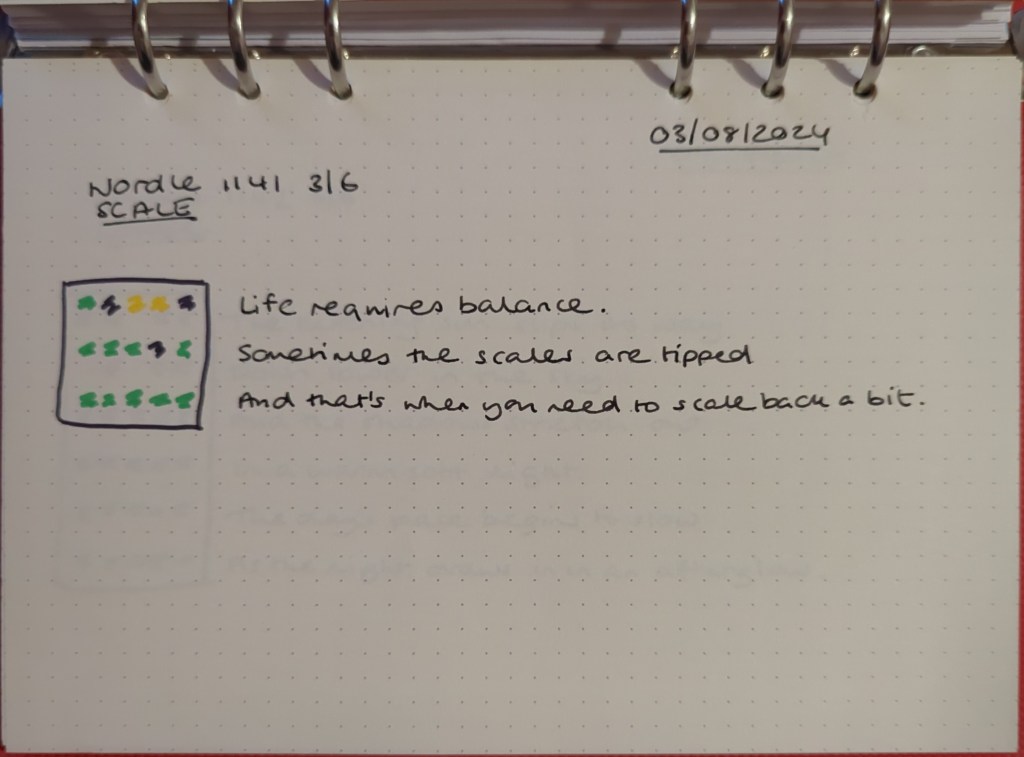 03/08/2024
Wordle 1141 3/6
SCALE
Life requires balance.
Sometimes the scales are tipped
And that's when you need to scale back a bit.